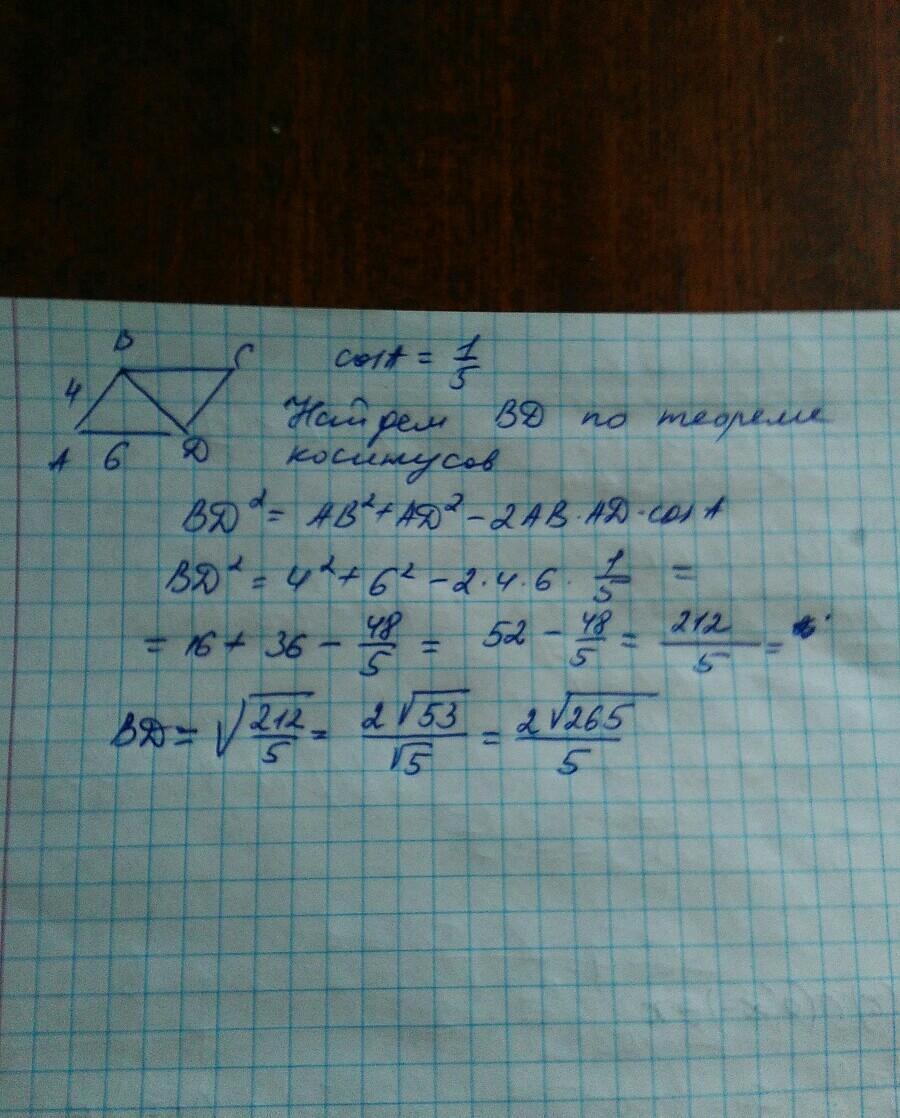 B
C
4
A 6 D
cosA = 1/5
Найдем BD по теореме
косинусов
BD² = AB² + AD² - 2AB·AD·cosA
BD² = 4² + 6² - 2·4·6·1/5 =
= 16 + 36 - 48/5 = 52 - 48/5 = 212/5 =
BD = √(212/5) = 2√53/√5 = 2√265/5